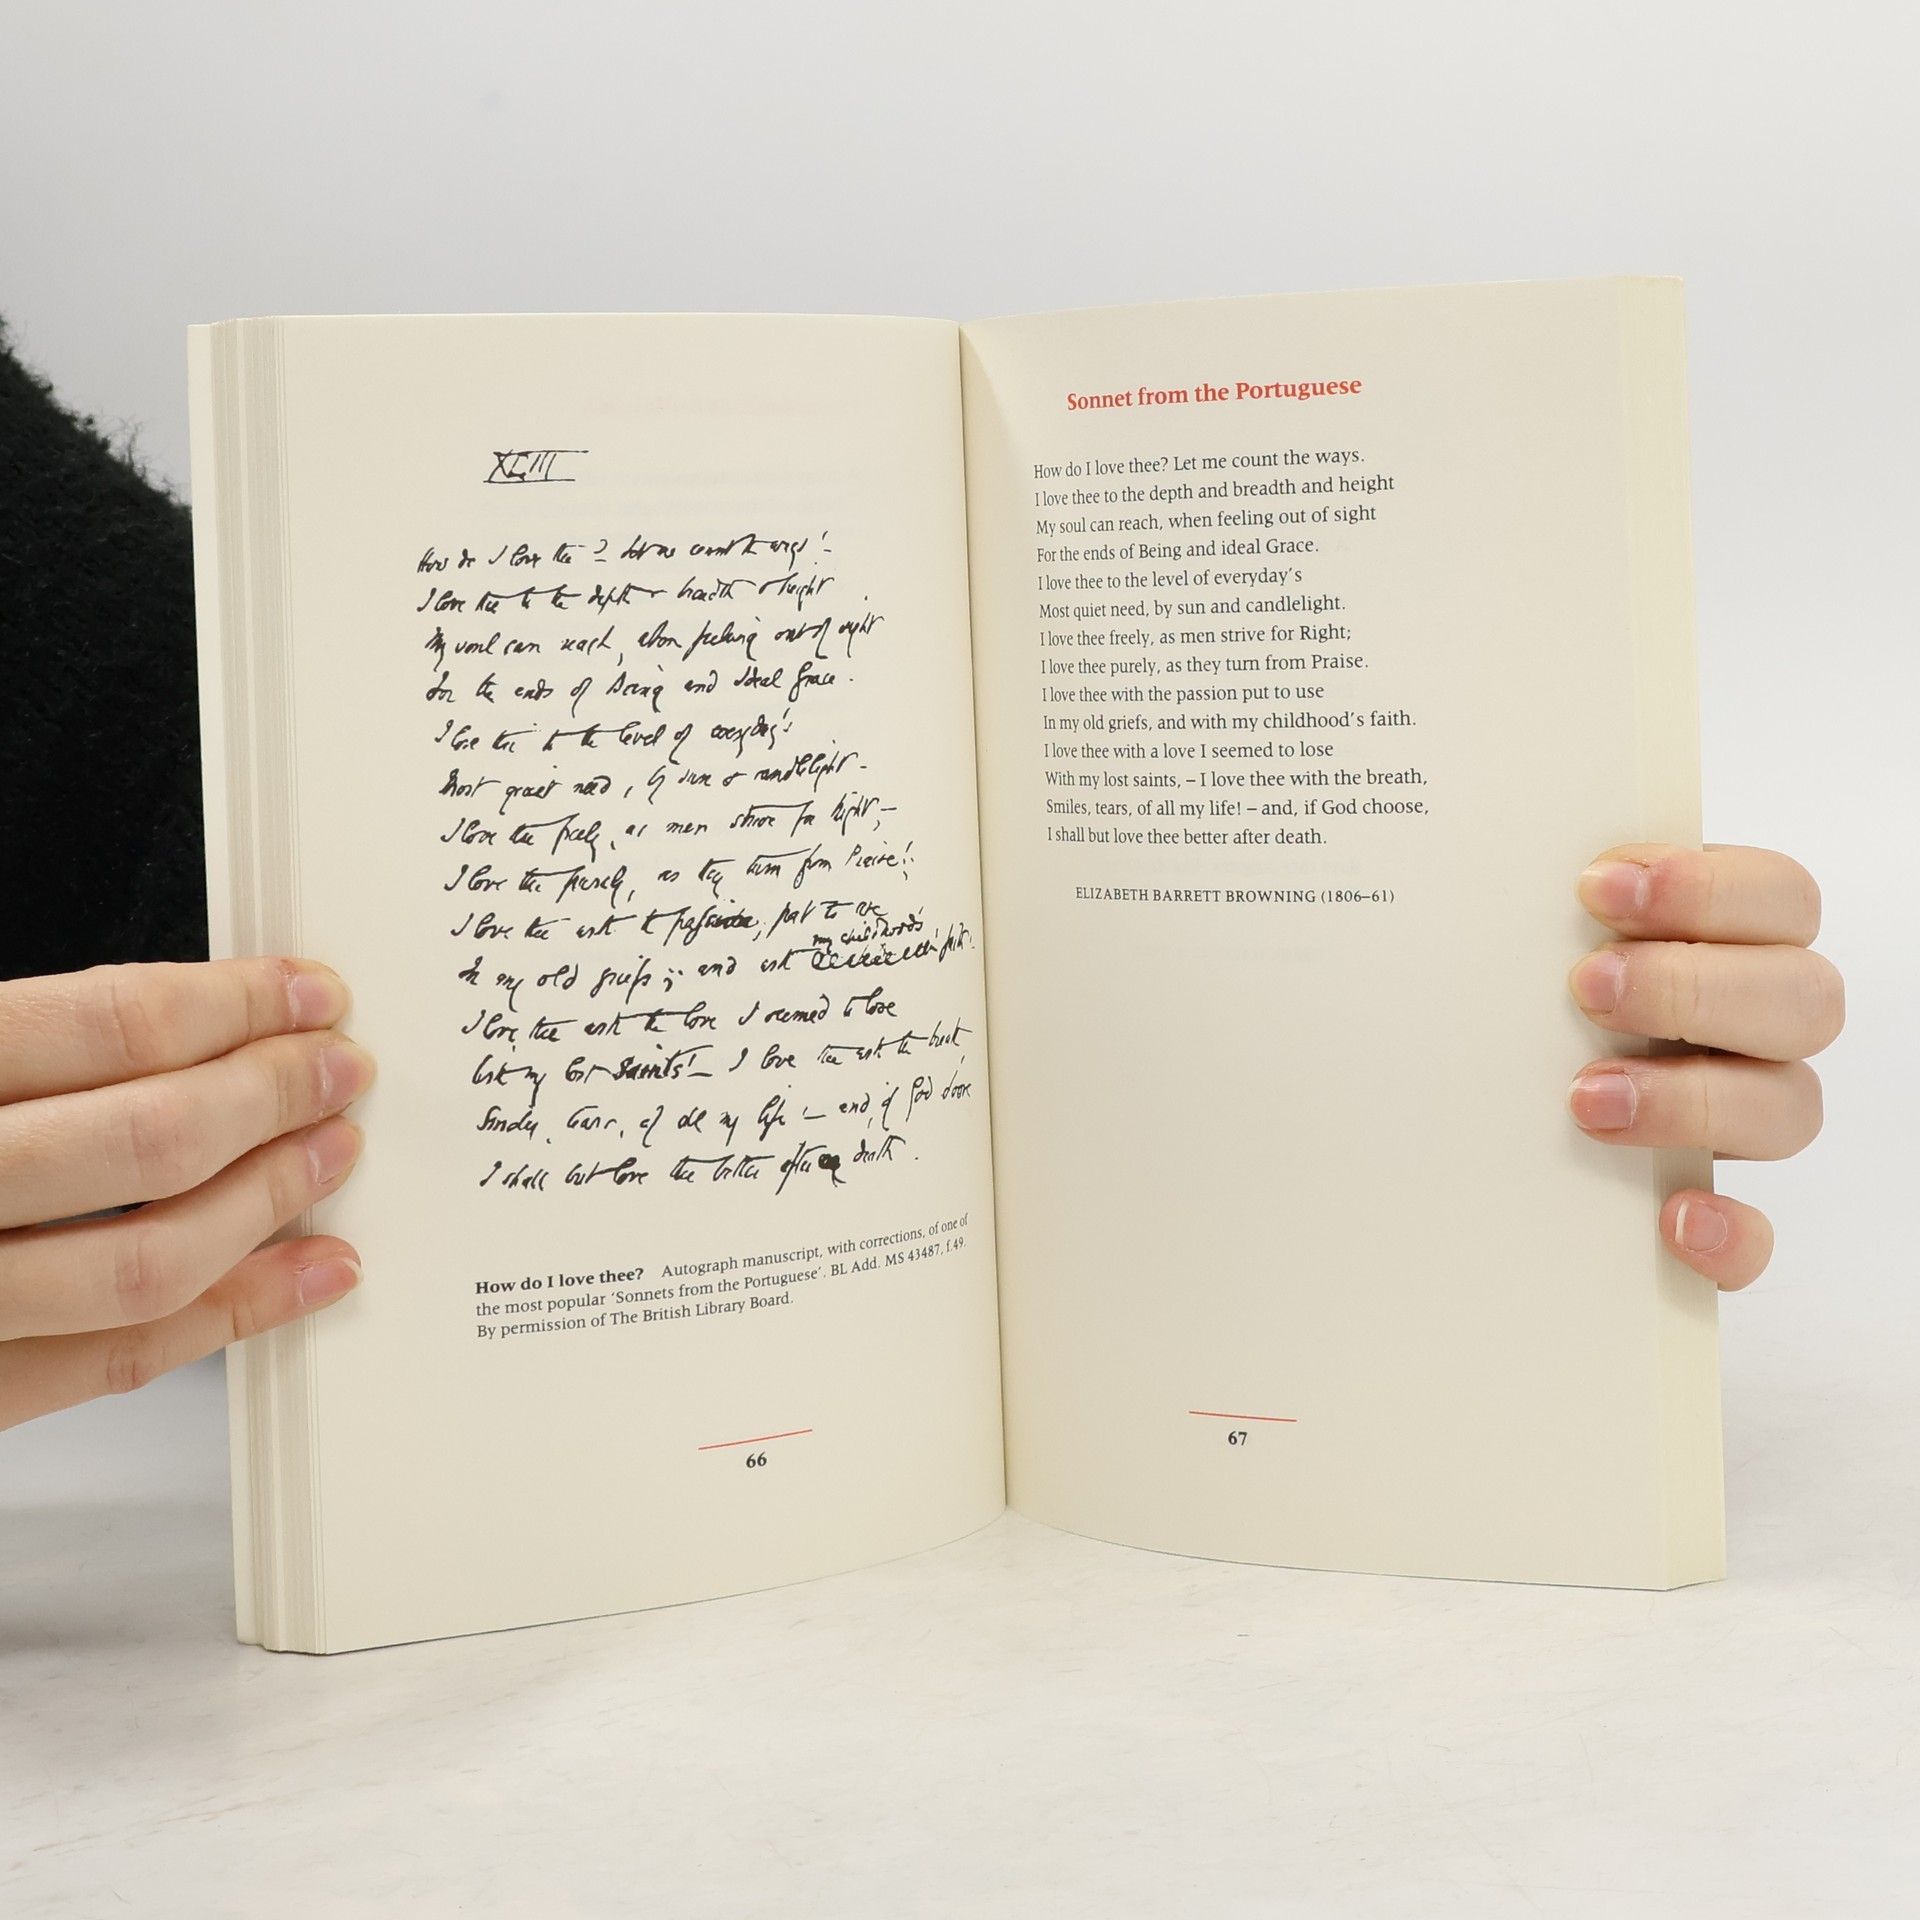 XLIII
How do I love thee? Let me count the ways!
I love thee to the depth & breadth & height
My soul can reach, when feeling out of sight
For the ends of Being and Ideal Grace.
I love thee to the level of everyday's
Most quiet need, by sun & candlelight.
I love thee freely, as men strive for Right,—
I love thee purely, as they turn from Praise!
I love thee with the passion, put to use
my childhood's
In my old griefs; and with faith.
I love thee with the love I seemed to lose
With my lost Saints! — I love thee with the breath
Smiles, tears, of all my life! — and, if God choose
I shall but love thee better after death.
How do I love thee? Autograph manuscript, with corrections, of one of
the most popular ‘Sonnets from the Portuguese’. BL Add. MS 43487, f.49.
By permission of The British Library Board.
66
Sonnet from the Portuguese
How do I love thee? Let me count the ways.
I love thee to the depth and breadth and height
My soul can reach, when feeling out of sight
For the ends of Being and ideal Grace.
I love thee to the level of everyday’s
Most quiet need, by sun and candlelight.
I love thee freely, as men strive for Right;
I love thee purely, as they turn from Praise.
I love thee with the passion put to use
In my old griefs, and with my childhood’s faith.
I love thee with a love I seemed to lose
With my lost saints, – I love thee with the breath,
Smiles, tears, of all my life! – and, if God choose,
I shall but love thee better after death.
ELIZABETH BARRETT BROWNING (1806–61)
67